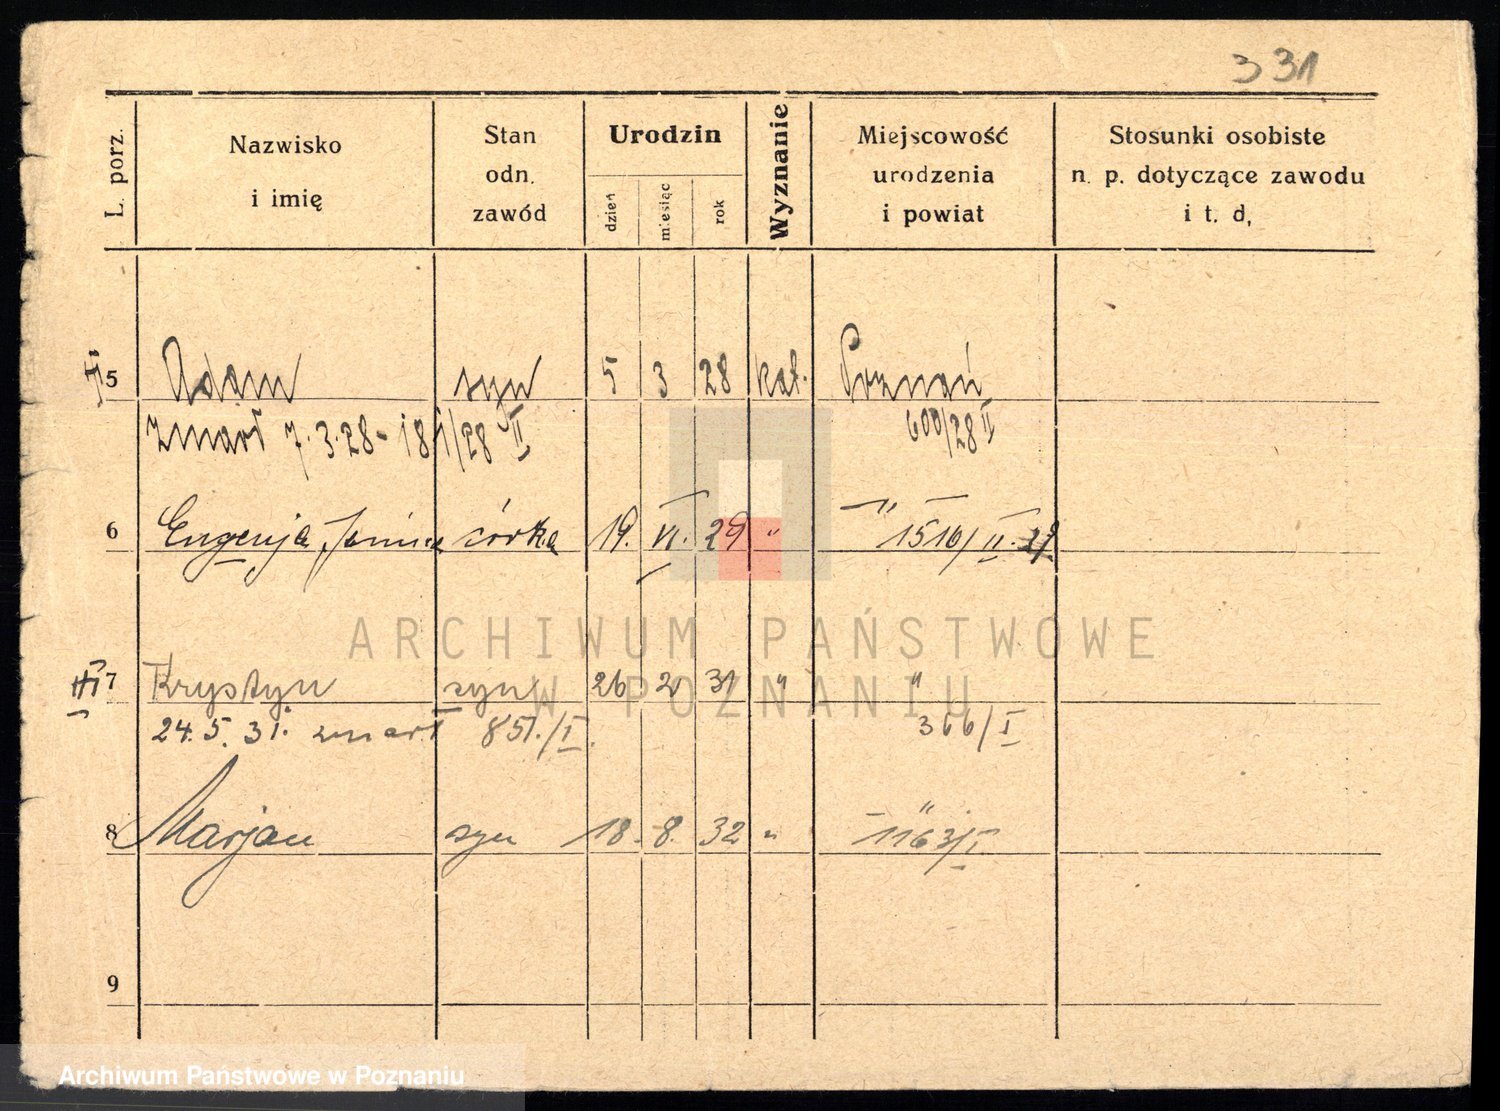 331
L. porz.
Nazwisko
i imię
Stan
odn.
zawód
Urodzin
dzień
miesiąc
rok
Wyznanie
Miejscowość
urodzenia
i powiat
Stosunki osobiste
n. p. dotyczące zawodu
i t. d,
5 Adam syn 5 3 28 kat. Poznań
zmarł 7.3.28 - 181/28 II 600/28 II
6 Eugenja, Janina córka 19. VI. 29 " "
1516/II. 29
7 Krystyn syn 26 2 31 " "
24.5.31. zmarł 851./I. 366/I
8 Marjan syn 18. 8. 32 " "
1163/I
9
ARCHIWUM PAŃSTWOWE
W POZNANIU
Archiwum Państwowe w Poznaniu